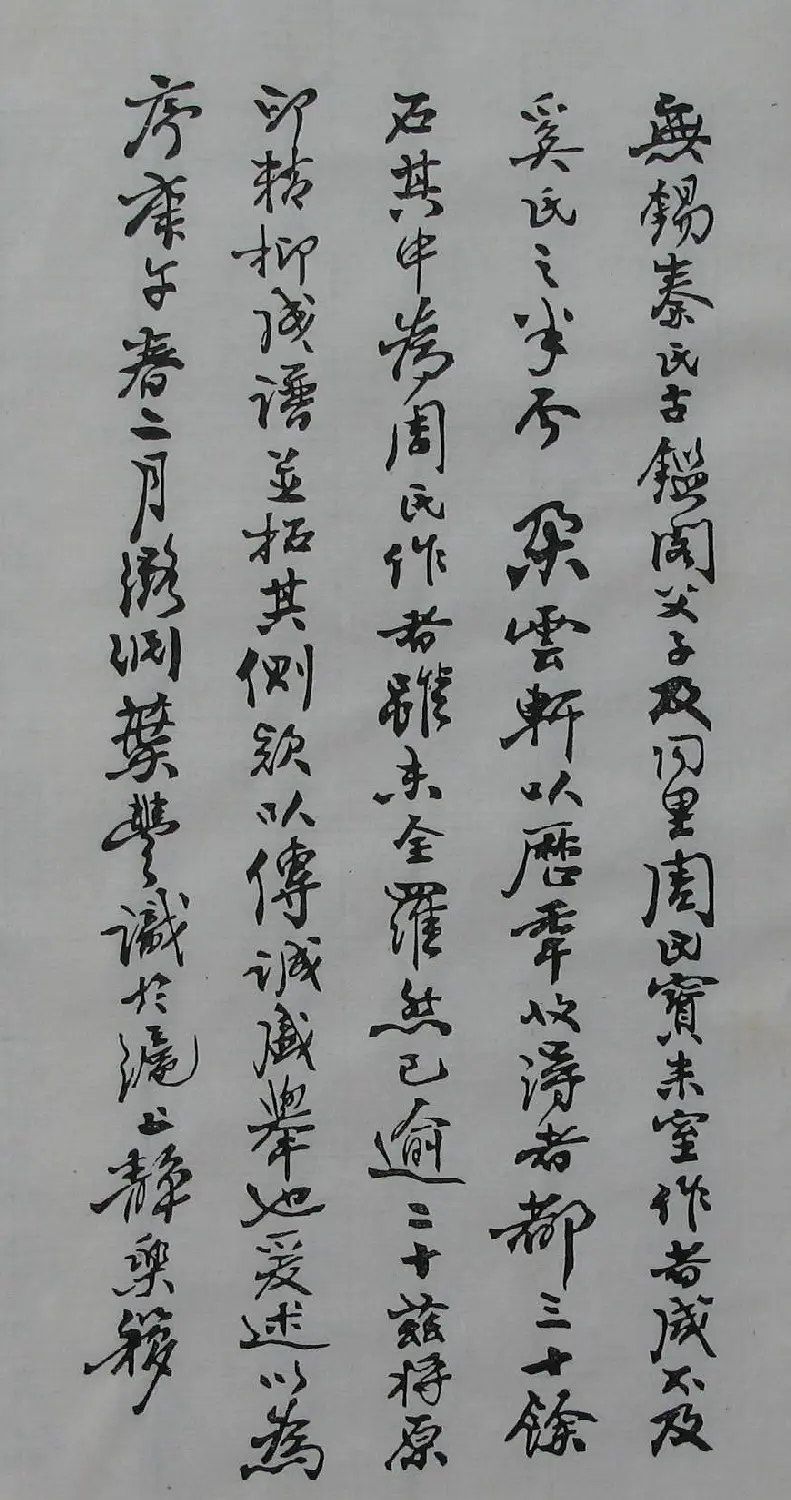 無錫秦氏古鑑閣父子及同里周氏寶米室作者咸不及
奚氏之半今朵雲軒以歷年收得者都三十餘
石其中為周氏作者雖未全羅然已逾二十茲將原
印精柳成譜並拓其側款以傳誠盛舉也爰述以為
序庚午春二月潞淵葉豐識於滬上靜樂簃